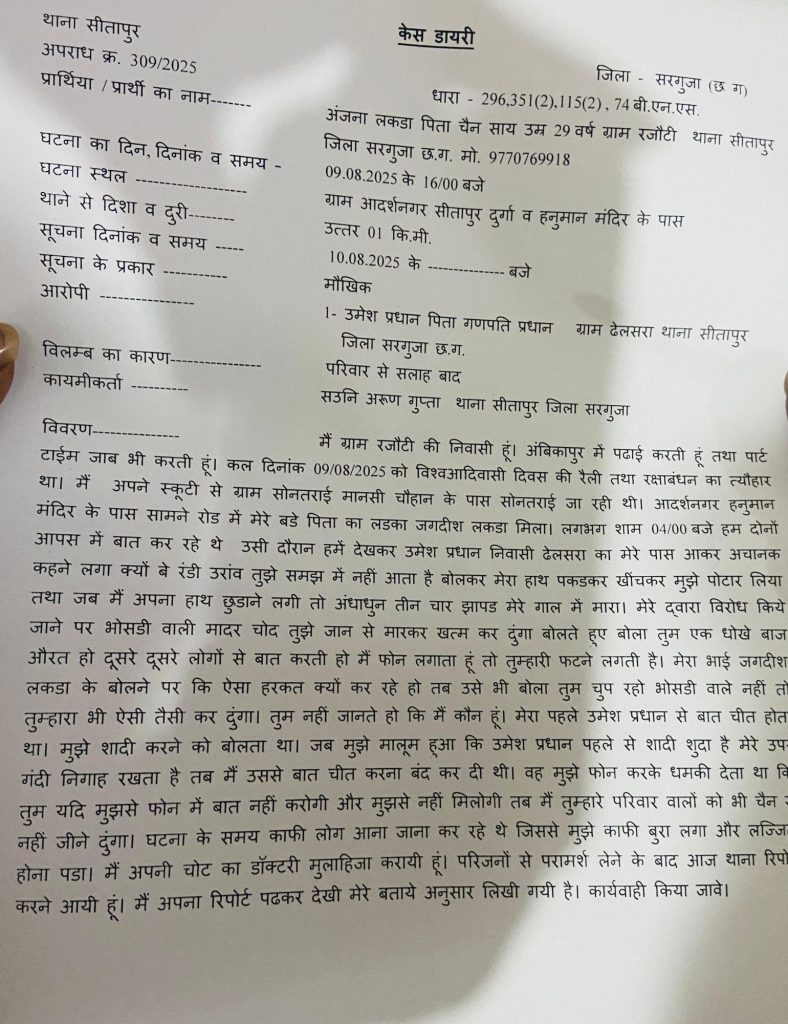 थाना सीतापुर
केस डायरी
अपराध क्र. 309/2025
जिला - सरगुजा (छ ग)
प्रार्थिया / प्रार्थी का नाम-------
धारा - 296,351(2),115(2) , 74 बी.एन.एस.
अंजना लकडा पिता चैन साय उम्र 29 वर्ष ग्राम रजौटी थाना सीतापुर
जिला सरगुजा छ.ग. मो. 9770769918
घटना का दिन, दिनांक व समय -
09.08.2025 के 16/00 बजे
घटना स्थल -------------------
ग्राम आदर्शनगर सीतापुर दुर्गा व हनुमान मंदिर के पास
थाने से दिशा व दुरी--------
उत्तर 01 कि.मी.
सूचना दिनांक व समय -----
10.08.2025 के --------------- बजे
सूचना के प्रकार -----------
मौखिक
आरोपी ----------------
1- उमेश प्रधान पिता गणपति प्रधान ग्राम ढेलसरा थाना सीतापुर
जिला सरगुजा छ.ग.
विलम्ब का कारण---------------
परिवार से सलाह बाद
कायमीकर्ता ----------
सउनि अरूण गुप्ता थाना सीतापुर जिला सरगुजा
विवरण---------------
मैं ग्राम रजौटी की निवासी हूं। अंबिकापुर में पढाई करती हूं तथा पार्ट
टाईम जाब भी करती हूं। कल दिनांक 09/08/2025 को विश्वआदिवासी दिवस की रैली तथा रक्षाबंधन का त्यौहार
था। मैं अपने स्कूटी से ग्राम सोनतराई मानसी चौहान के पास सोनतराई जा रही थी। आदर्शनगर हनुमान
मंदिर के पास सामने रोड में मेरे बडे पिता का लडका जगदीश लकडा मिला। लगभग शाम 04/00 बजे हम दोनों
आपस में बात कर रहे थे उसी दौरान हमें देखकर उमेश प्रधान निवासी ढेलसरा का मेरे पास आकर अचानक
कहने लगा क्यों बे रंडी उरांव तुझे समझ में नहीं आता है बोलकर मेरा हाथ पकडकर खींचकर मुझे पोटार लिया
तथा जब मैं अपना हाथ छुडाने लगी तो अंधाधुन तीन चार झापड मेरे गाल में मारा। मेरे द्वारा विरोध किये
जाने पर भोसडी वाली मादर चोद तुझे जान से मारकर खत्म कर दुंगा बोलते हूए बोला तुम एक धोखे बाज
औरत हो दूसरे दूसरे लोगों से बात करती हो मैं फोन लगाता हूं तो तुम्हारी फटने लगती है। मेरा भाई जगदीश
लकडा के बोलने पर कि ऐसा हरकत क्यों कर रहे हो तब उसे भी बोला तुम चुप रहो भोसडी वाले नहीं तो
तुम्हारा भी ऐसी तैसी कर दुंगा। तुम नहीं जानते हो कि मैं कौन हूं। मेरा पहले उमेश प्रधान से बात चीत होत
था। मुझे शादी करने को बोलता था। जब मुझे मालूम हूआ कि उमेश प्रधान पहले से शादी शुदा है मेरे उप
गंदी निगाह रखता है तब मैं उससे बात चीत करना बंद कर दी थी। वह मुझे फोन करके धमकी देता था कि
तुम यदि मुझसे फोन में बात नहीं करोगी और मुझसे नहीं मिलोगी तब मैं तुम्हारे परिवार वालों को भी चैन
नहीं जीने दुंगा। घटना के समय काफी लोग आना जाना कर रहे थे जिससे मुझे काफी बुरा लगा और लज्जि
होना पडा। मैं अपनी चोट का डॉक्टरी मुलाहिजा करायी हूं। परिजनों से परामर्श लेने के बाद आज थाना रिपो
करने आयी हूं। मैं अपना रिपोर्ट पढकर देखी मेरे बताये अनुसार लिखी गयी है। कार्यवाही किया जावे।